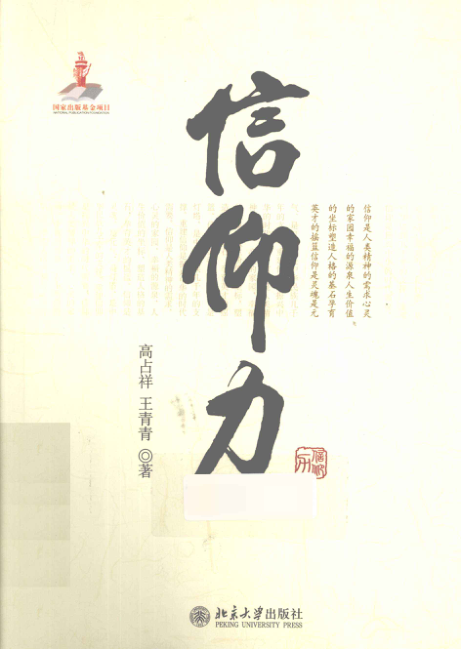 国家出版基金项目
NATIONAL PUBLICATION FOUNDATION
信仰力
信仰是人类精神的需求心灵
的家园幸福的源泉人生价值
的坐标塑造人格的基石孕育
英才的摇篮信仰是灵魂是元
高占祥 王青青 ◎著
北京大学出版社
PEKING UNIVERSITY PRESS